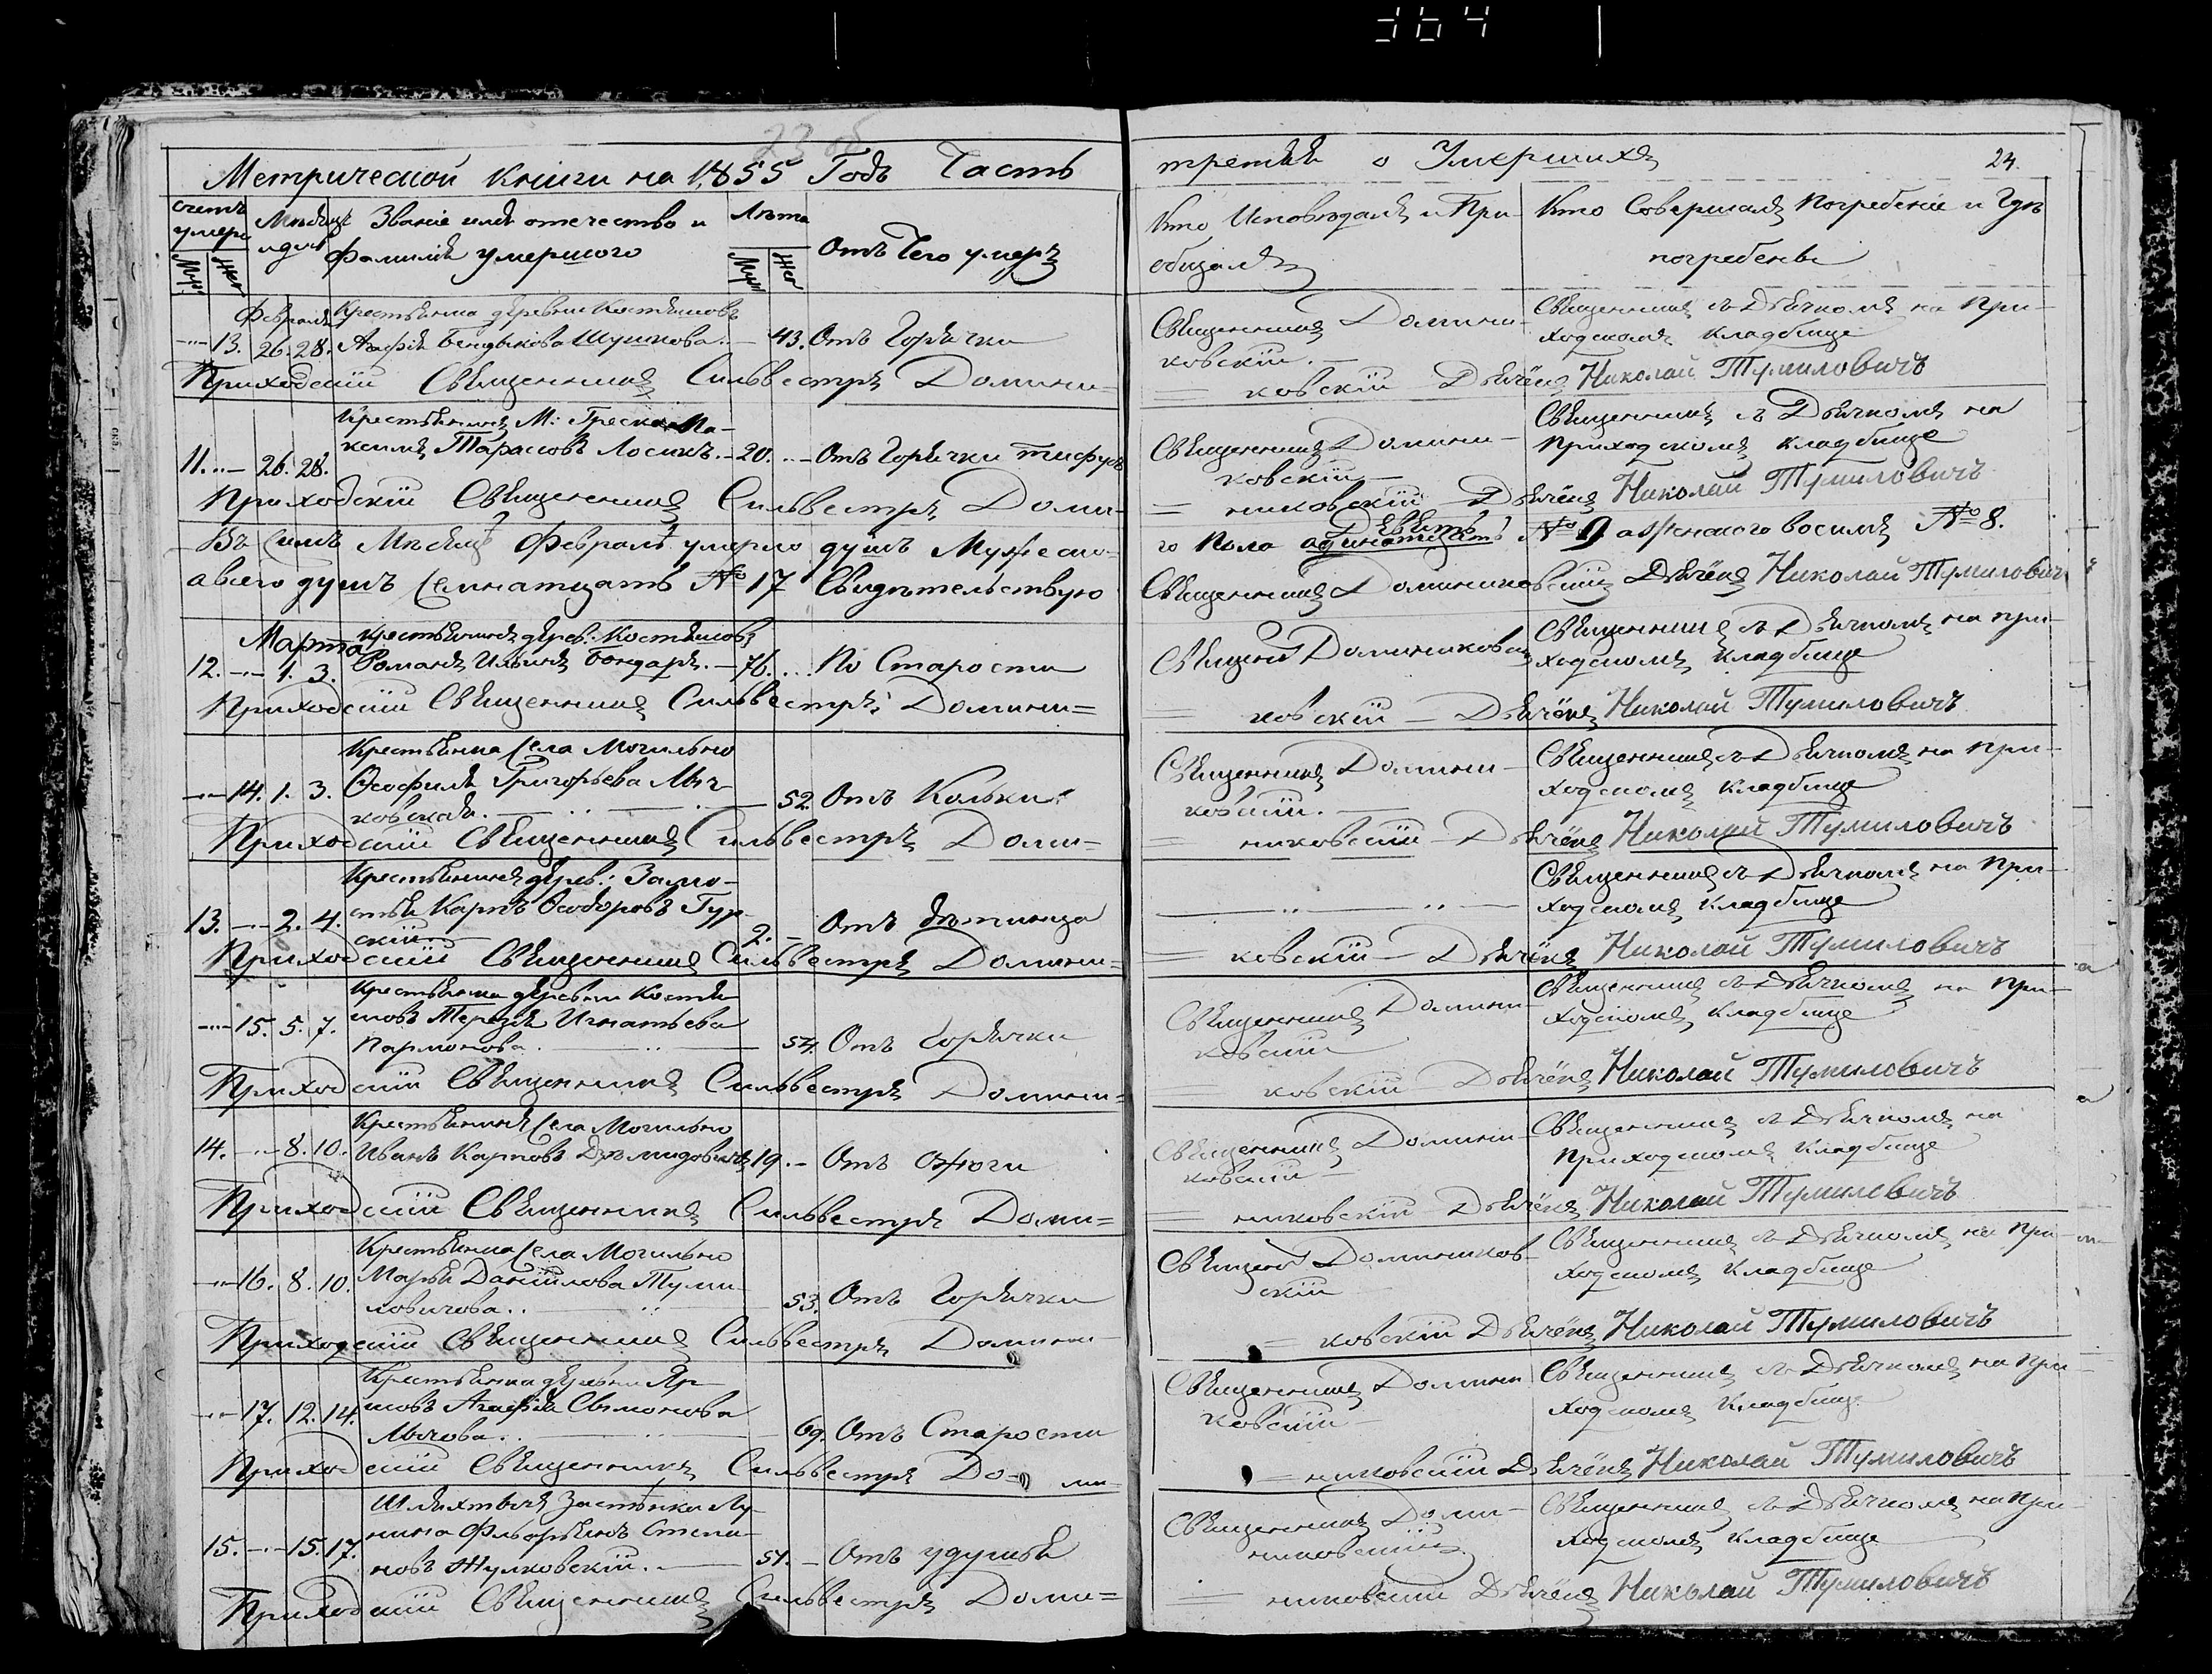 364
23 об
Метрической Книги на 1855 Годъ Часть
третья о Умершихъ
24.
счетъ умерш
Мѣсяцъ и день
Званіе имя отечество и
фамилія умершого
Лѣта
Отъ Чего умеръ
Муж
Жен
Муж
Жен
Кто Исповѣдалъ и При-
общалъ
Кто Совершалъ Погребеніе и Гдѣ
погребены
Февраля
Крестьянка деревни Костюшовъ
13. 26. 28. Агафія Бендыкова Шушкова. 43. Отъ Горячки
Священникъ Домини-
ковскій.
Священникъ съ Дьячкомъ на При-
ходскомъ Кладбище
Приходскій Священникъ Сильвестръ Домини=
ковскій Дьячёкъ Николай Тумиловичъ
Крестьянинъ М: Греска Ма-
11. 26. 28. ксимъ Тарасовъ Лосикъ. 20. Отъ Горячки тифусъ
Священникъ Домини-
ковскій
Священникъ съ Дьячкомъ на
Приходскомъ Кладбище
Приходскій Священникъ Сильвестръ Доми-
= никовскій Дьячёкъ Николай Тумиловичъ
Въ Семъ Мѣсяцѣ Февралѣ умерло душъ Мужеско-
го Пола Девять № 9 а Женского восемь № 8.
а всего душъ Семнатцать № 17 Свидѣтельствую
Священникъ Доминиковскій Дьячёкъ Николай Тумилович
Марта
Крестьянинъ дерев: Костюшовъ
12. 1. 3. Романъ Ильинъ Бондаръ. 76. По Старости
Священ Доминиковск
Священникъ съ Дьячкомъ на при-
ходскомъ Кладбище
Приходскій Священникъ Сильвестръ Домини=
= ковскій Дьячёкъ Николай Тумиловичъ
Крестьянка Села Могильно
14. 1. 3. Феофила Григорьева Мыч-
ковская. 52. Отъ Кольки
Священникъ Домини-
ковскій.
Священникъ съ Дьячкомъ на При-
ходскомъ Кладбище
Приходскій Священникъ Сильвестръ Доми=
= никовскій Дьячёкъ Николай Тумиловичъ
Крестьянинъ дерев: Замо-
13. 2. 4. стья Карпъ Феодоровъ Гур-
скій. 2. Отъ дѣтинца
Священникъ съ Дьячкомъ на При-
ходскомъ Кладбище
Приходскій Священникъ Сильвестръ Домини=
= ковскій Дьячёкъ Николай Тумиловичъ
Крестьянка деревни Костю
15. 5. 7. шовъ Терезія Игнатьева
Пармонова. 54. Отъ Горячки
Священникъ Домини-
ковскій
Священникъ съ Дьячкомъ на При-
ходскомъ Кладбище
Приходскій Священникъ Сильвестръ Домини=
= ковскій Дьячёкъ Николай Тумиловичъ
Крестьянинъ Села Могильно
14. 8. 10. Иванъ Карповъ Демидовичъ 19. Отъ Ожоги
Священникъ Домини-
ковскій
Священникъ съ Дьячкомъ на
Приходскомъ Кладбище
Приходскій Священникъ Сильвестръ Доми=
= никовскій Дьячёкъ Николай Тумиловичъ
Крестьянка Села Могильно
16. 8. 10. Марья Даніилова Туми
ловичова. 53. Отъ Горячки
Священ Домиников-
скій
Священникъ съ Дьячкомъ на При-
ходскомъ Кладбище
Приходскій Священникъ Сильвестръ Домини
= ковскій Дьячёкъ Николай Тумиловичъ
Крестьянка деревни Яр-
17. 12. 14. шовъ Агафія Сымонова
Мычова. 69. Отъ Старости
Священникъ Домини
ковскій
Священникъ съ Дьячкомъ на При-
ходскомъ Кладбище.
Приходскій Священникъ Сильвестръ До= ми-
= никовскій Дьячёкъ Николай Тумиловичъ
Шляхтычъ Застѣнка Лу-
15. 15. 17. нина Фльоріянъ Степа-
новъ Жулковскій. 51. Отъ удушья
Священникъ Доми-
никовскій
Священникъ съ Дьячкомъ на При-
ходскомъ Кладбище
Приходскій Священникъ Сильвестръ Доми=
= никовскій Дьячёкъ Николай Тумиловичъ